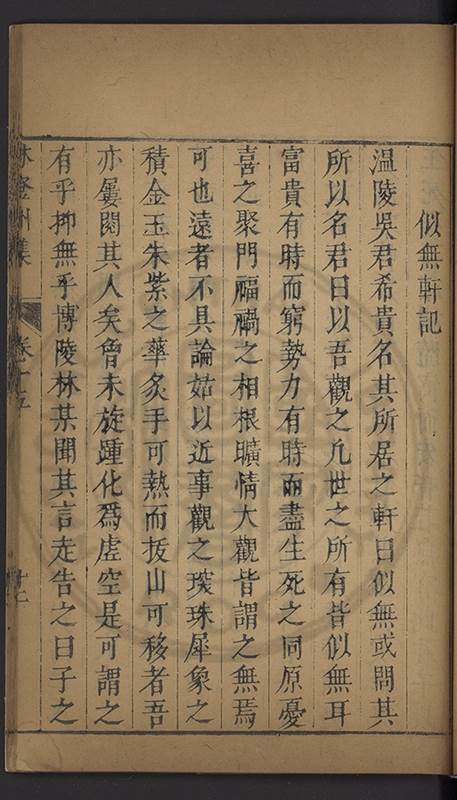 似無軒記
温陵吳君希貴名其所居之軒曰似無或問其
所以名君曰以吾觀之凢世之所有皆似無耳
富貴有時而窮勢力有時而盡生死之同原憂
喜之聚門福禍之相根曠情大觀皆謂之無焉
可也遠者不具論姑以近事觀之璣珠犀象之
積金玉朱紫之華炙手可熱而拔山可移者吾
亦屢閱其人矣曾未旋踵化爲虛空是可謂之
有乎抑無乎博陵林某聞其言走告之曰子之
林登州集
卷十五
十二